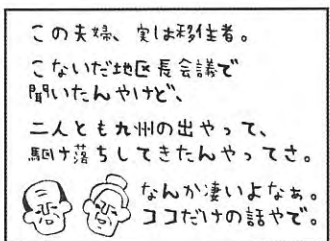 この夫婦、実は移住者。
こないだ地区長会議で
聞いたんやけど、
二人とも九州の出やって、
駆け落ちしてきたんやってさ。
なんか凄いよなぁ。
ココだけの話やで。